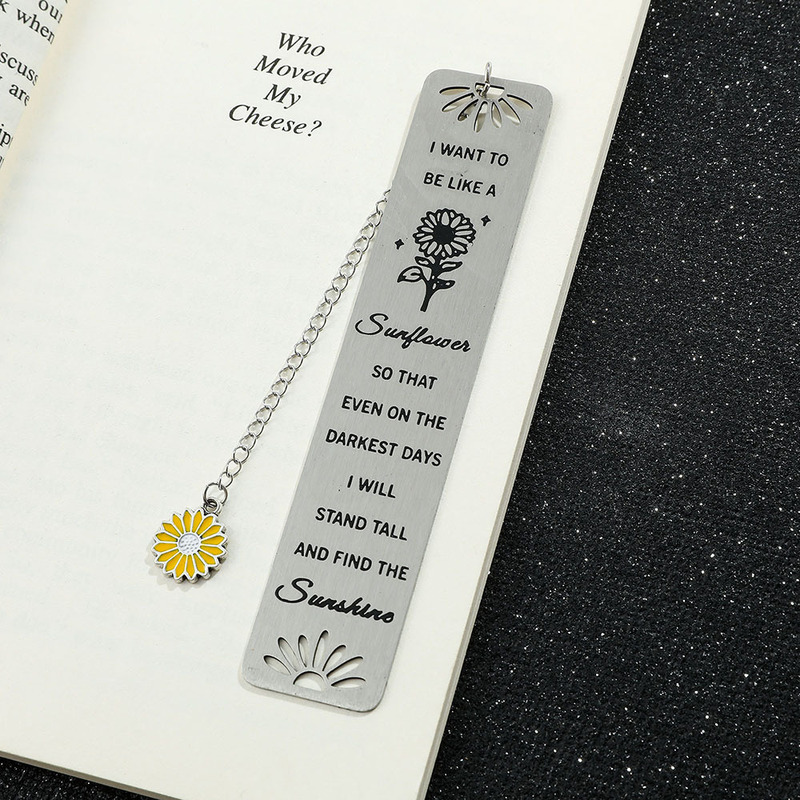 ou
k when
scuss
are
ip
Who
Moved
My
Cheese?
I WANT TO
BE LIKE A
Sunflower
SO THAT
EVEN ON THE
DARKEST DAYS
I WILL
STAND TALL
AND FIND THE
Sunshine